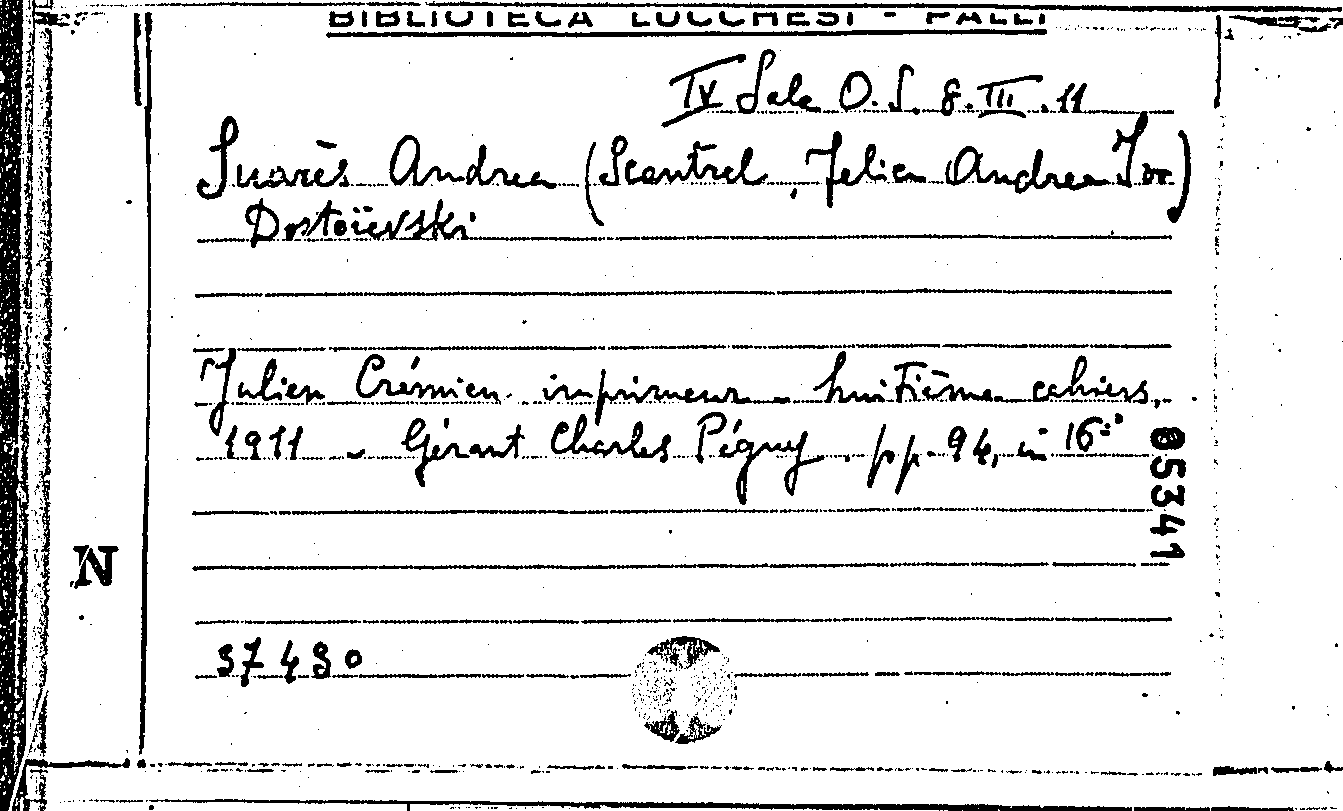 BIBLIOTECA LUCCHESI - PALLI
IV Sala O.S. 8.III.11
Suarès Andrea (Scantrel, Felien Andrea Ivor)
Dostoïevski
Julien Crémieu imprimeur - huitième cahiers,
1911 - Gérant Charles Péguy. pp. 94, in 16°
85341
N
37430